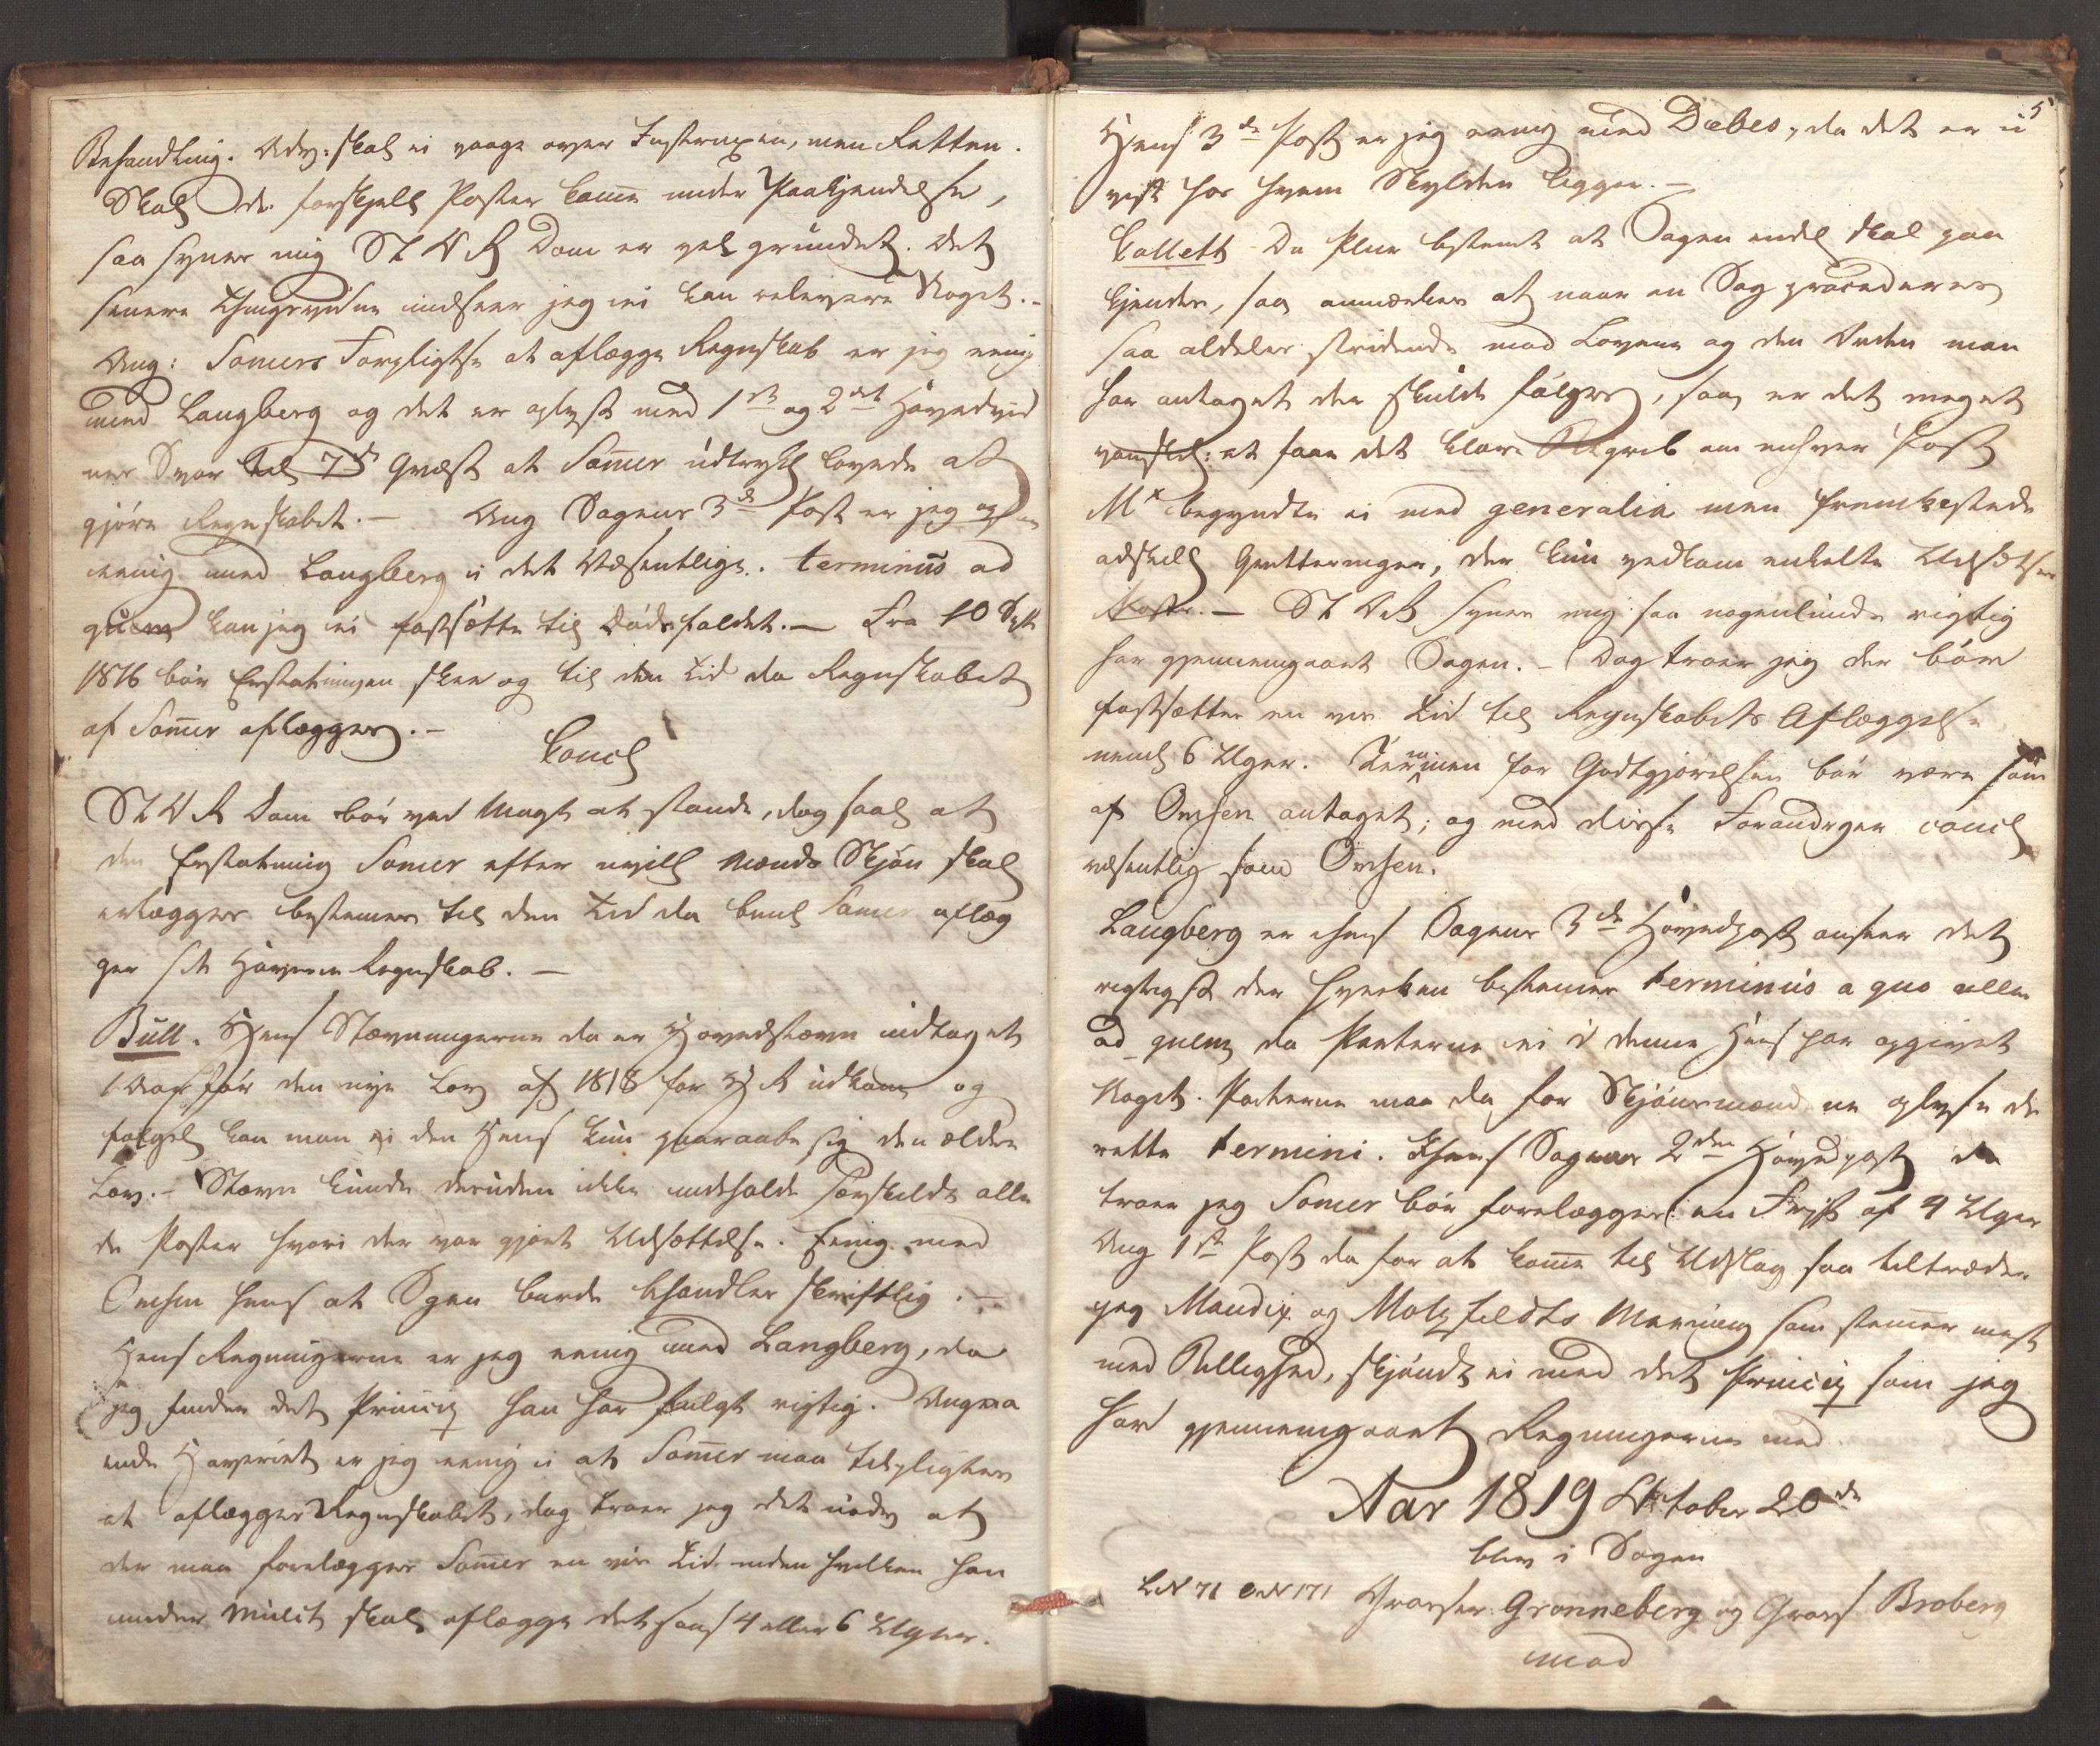 Behandling. Adv: skal ei vaage over Instruxen, men Retten.
Skal de forskjell Poster kome under Paakjendelse,
saa synes mig St O R Dom er vel grundet. Det
senere Thingsvidne indseer jeg ei kan relevere Noget.-
Ang: Somers Forpligtse at aflægge Regnskab er jeg enig
med Langberg og det er oplyst med 1ste og 2det Hovedvid
ners Svar til 7de Qvæst at Somer udtrykk lovede at
gjøre Regnskabet. - Ang Sagens 3de Post er jeg og
eenig med Langberg i det Væsentlige. terminus ad
quem kan jeg ei fastsætte til Dødsfaldet. - Fra 10 Sept
1816 bør Erstatningen skee og til den Tid da Regnskabet
af Somer aflægges. -
Concl
St O R Dom bør ved Magt at stande, dog saal at
den Erstatning Somer efter uvill Mænds Skjøn skal
erlægges bestemes til den Tid da benl Somer aflæg
ger sit Haverie Regnskab. -
Bull. Hens Stævningerne da er Hovedstævn indtaget
1 Aar før den nye Lov af 1818 for H R udkom og
følgel kan man ei den Hens kun paaraabe sig den ældre
Lov. - Stævn kunde desuden ikke indeholde særskildt alle
de Poster hvori der var gjort Udsættelse. Enig med
Omsen hens at Sagen burde behandles skriftlig. -
Hens Regningerne er jeg eenig med Langberg, da
jeg finder det Princip han har fulgt rigtig. Angaa
ende Haveriet er jeg eenig i at Somer maa tilpligtes
at aflægge Regnskabet, dog troer jeg det nødv at
der maa forelægges Somer en vis Tid inden hvilken han
under Mulct skal aflægge det hans 4 eller 6 Uger.
5
Hens 3de Post er jeg eenig med Debes, da det er u
vist hos hvem Skylden ligger. -
Collett Da Plur bestemt at Sagen endl skal paa
kjendes, saa anmærkes at naar en Sag procederes
saa aldeles stridende mod Lovene og den Orden man
har antaget der skulde følges, saa er det meget
vanskel: at faae det klare Begreb om enhver Post
Mx begyndte ei med generalia men fremkastede
adskill Qvitteringer, der kun vedkom enkelte Udsættelser
Poster. - St O R synes mig saa nogenlunde rigtig
har gjennemgaaet Sagen. - Dog troer jeg der bør
fastsættes en vis Tid til Regnskabets Aflæggelse
neml 6 Uger. Terminen for Godtgjørelsen bør være som
af Omsen antaget; og med disse Forandrger concl
væsentlig som Omsen.
Langberg er hens Sagens 3de Hovedpost anseer det
rigtigst der hverken bestemes terminus a quo eller
ad quem da Parterne ei i denne Hens har opgivet
Noget. Parterne maa da for Skjønsmænd ne oplyse de
rette termini. Hens Sagens 2den Hovedpost da
troer jeg Somer bør forelægges en Frist af 4 Uger
Ang 1ste Post da for at kome til Udslag saa tiltræder
jeg Mandix og Motzfeldts Mening som stemer mest
med Billighed, skjøndt ei med det Princip som jeg
har gjennemgaaet Regningerne med.
Aar 1819 Oktober 20de
blev i Sagen
LN 71 ON 171 Grosser. Gronneberg og Gross Broberg
mod